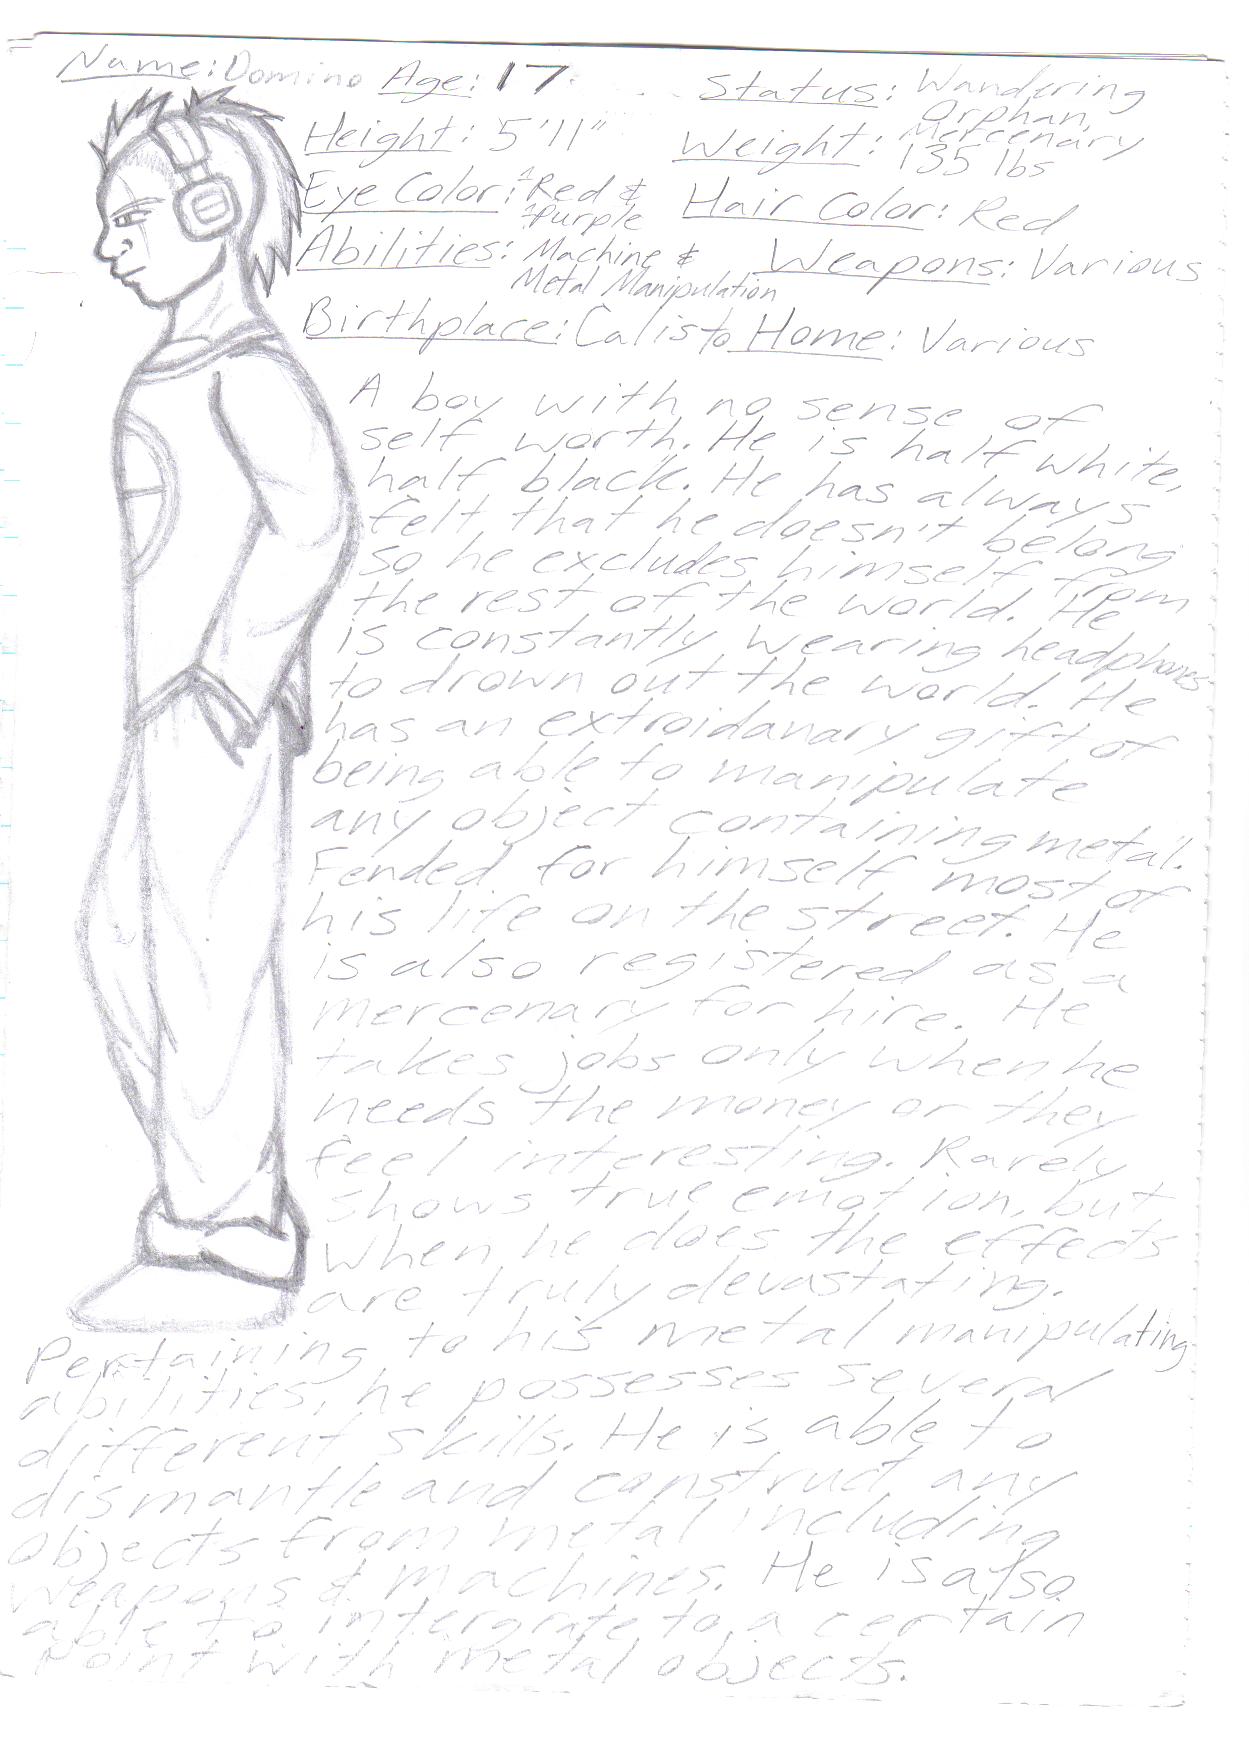 Name: Domino Age: 17 Status: Wandering
Orphan,
Mercenary
Height: 5'11" Weight: 135 lbs
Eye Color: 1 Red &
1 Purple
Hair Color: Red
Abilities: Machine &
Metal Manipulation
Weapons: Various
Birthplace: Calisto Home: Various
A boy with no sense of
self worth. He is half white,
half black. He has always
felt that he doesn't belong
so he excludes himself from
the rest of the world. He
is constantly wearing headphones
to drown out the world. He
has an extroidanary gift of
being able to manipulate
any object containing metal.
Fended for himself most of
his life on the street. He
is also registered as a
mercenary for hire. He
takes jobs only when he
needs the money or they
feel interesting. Rarely
shows true emotion, but
when he does the effects
are truly devastating.
Pertaining to his metal manipulating
abilities, he possesses several
different skills. He is able to
dismantle and construct any
objects from metal including
weapons & machines. He is also
able to intergrate to a certain
point with metal objects.